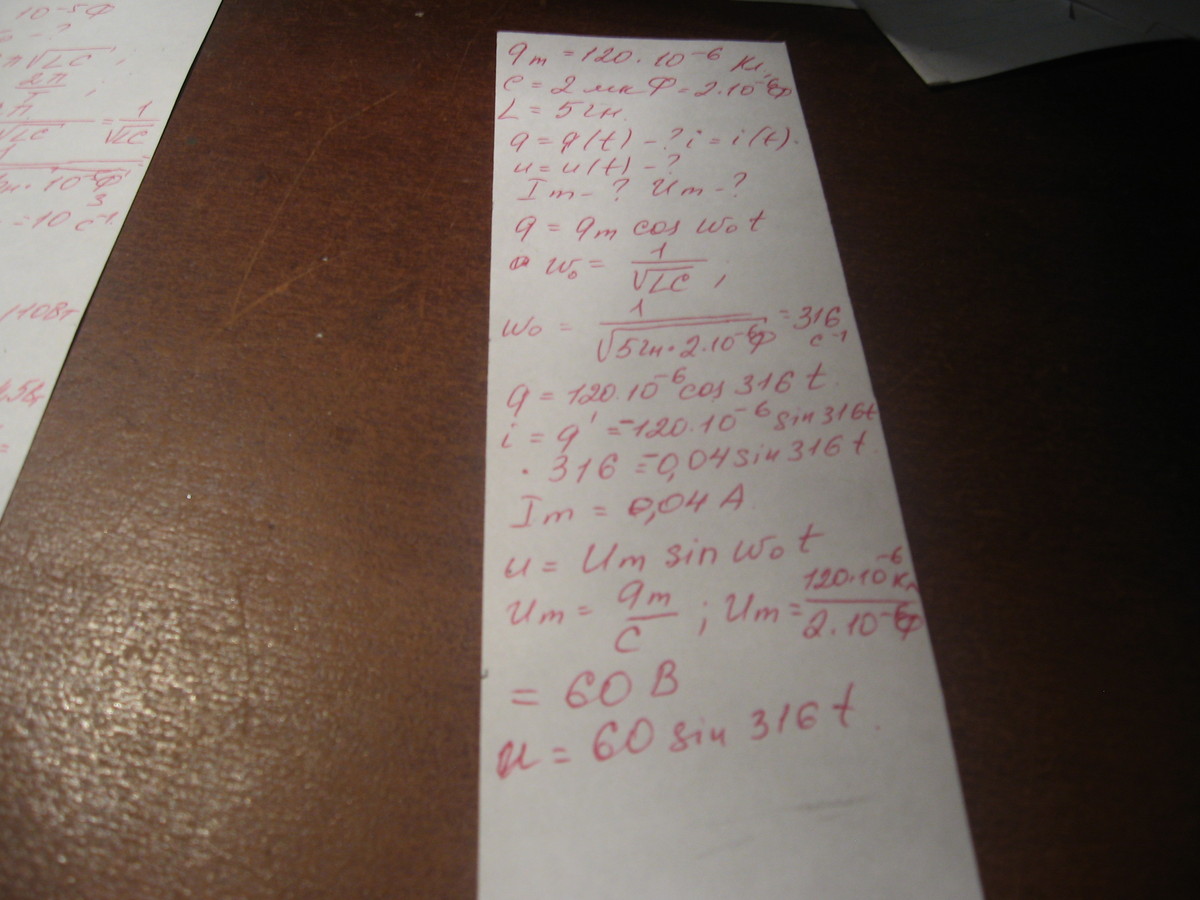 10⁻⁵Ф
- ?
π√LC,
2π
√LC = 1/√LC
10⁻³Ф
= 10 c⁻¹
110Вт
qm = 120·10⁻⁶ Кл,
C = 2 мкФ = 2·10⁻⁶Ф
L = 5 Гн.
q = q(t) - ? i = i(t).
u = u(t) - ?
Im - ? Um - ?
q = qm cos ω₀t
ω₀ = 1/√LC ,
ω₀ = 1/√5Гн·2·10⁻⁶Ф = 316 c⁻¹
q = 120·10⁻⁶ cos 316 t
i = q' = -120·10⁻⁶ sin 316t
· 316 = -0,04 sin 316 t.
Im = 0,04 A
u = Um sin ω₀ t
Um = qm/C ; Um = 120·10⁻⁶ Кл/2·10⁻⁶Ф
= 60 В
u = 60 sin 316 t.